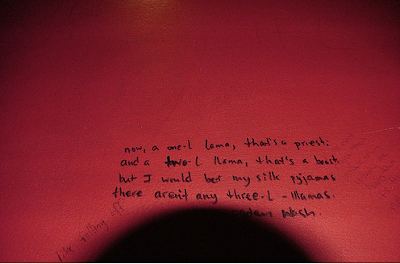 now, a one-L lama, that's a priest.
and a two-L llama, that's a beast.
but I would bet my silk pyjamas
there aren't any three-L - lllamas.
nash.